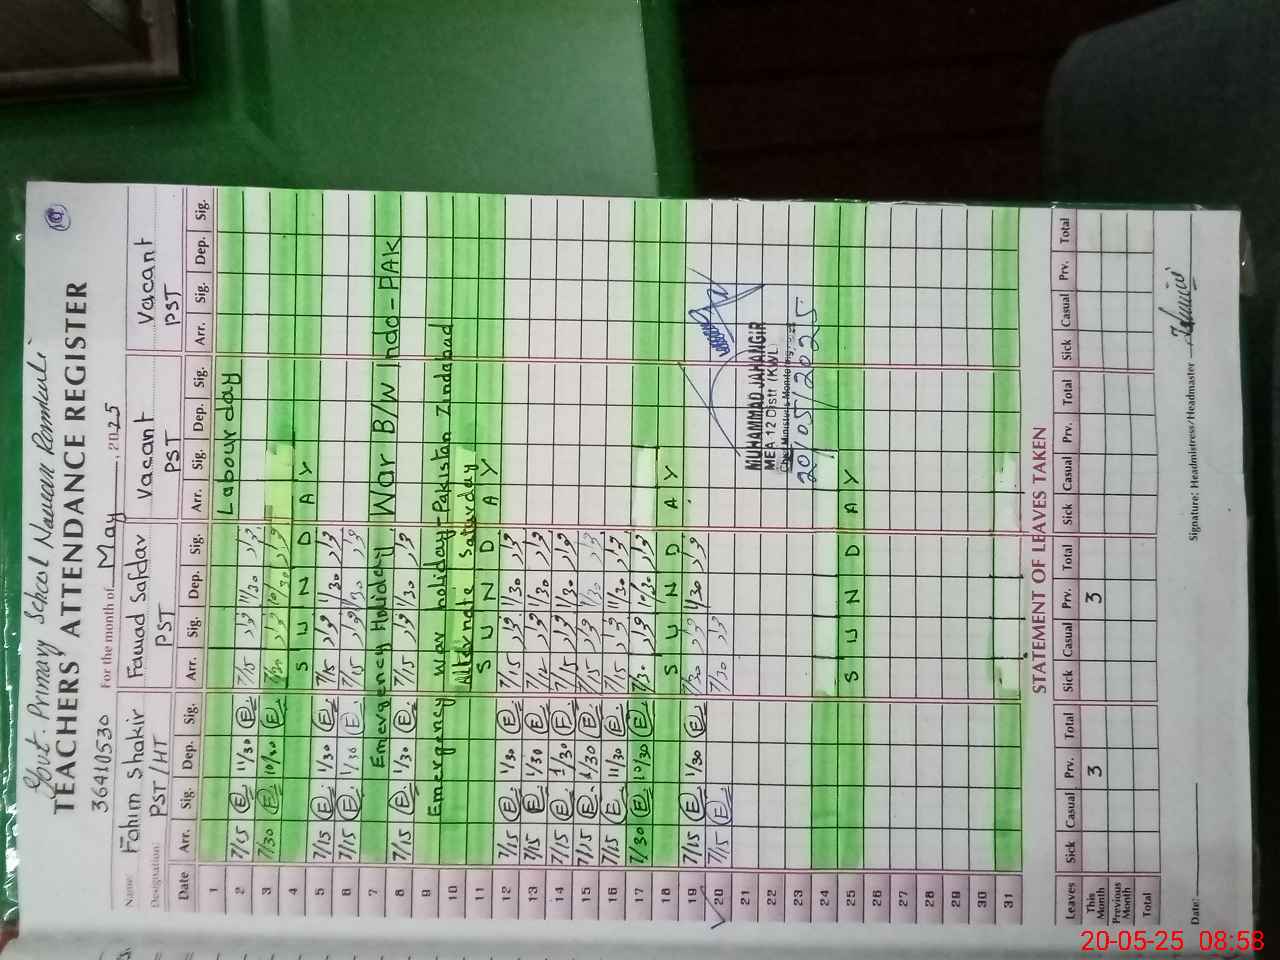 Govt. Primary School Nawan Ramkali
TEACHERS' ATTENDANCE REGISTER
19
36410530 For the month of May, 2025
Name: Fahim Shakir Fawad Safdar Vacant Vacant
Designation: PST/HT PST PST PST
Date Arr. Sig. Dep. Sig. Arr. Sig. Dep. Sig. Arr. Sig. Dep. Sig. Arr. Sig. Dep. Sig.
1 Labour day
2 7/15 E 11/30 E 7/15 11/30
3 7/30 E 10/30 E 7/30 10/30
4 S U N D A Y
5 7/15 E 1/30 E 7/15 1/30
6 7/15 E 1/30 E 7/15 1/30
7 Emergency Holiday War B/W Indo-PAK
8 7/15 E 1/30 E 7/15 1/30
9 Emergency War holiday-Pakistan Zindabad
10 Alternate Saturday
11 S U N D A Y
12 7/15 E 1/30 E 7/15 1/30
13 7/15 E 1/30 E 7/12 1/30
14 7/15 E 1/30 E 7/15 1/30
15 7/15 E 1/30 E 7/15 1/30
16 7/15 E 11/30 E 7/15 11/30
17 7/30 E 10/30 E 7/30 10/30
18 S U N D A Y
19 7/15 E 1/30 E 7/30 1/30
20 7/15 E 7/30
MUHAMMAD JAHANGIR
MEA 12 Distt (KWL)
Chief Ministers Monitoring
20/05/2025
21
22
23
24
25 S U N D A Y
26
27
28
29
30
31
STATEMENT OF LEAVES TAKEN
Leaves Sick Casual Prv. Total Sick Casual Prv. Total Sick Casual Prv. Total Sick Casual Prv. Total
This Month 3 3
Previous Month
Total
Date: Signature: Headmistress/Headmaster
20-05-25 08:58